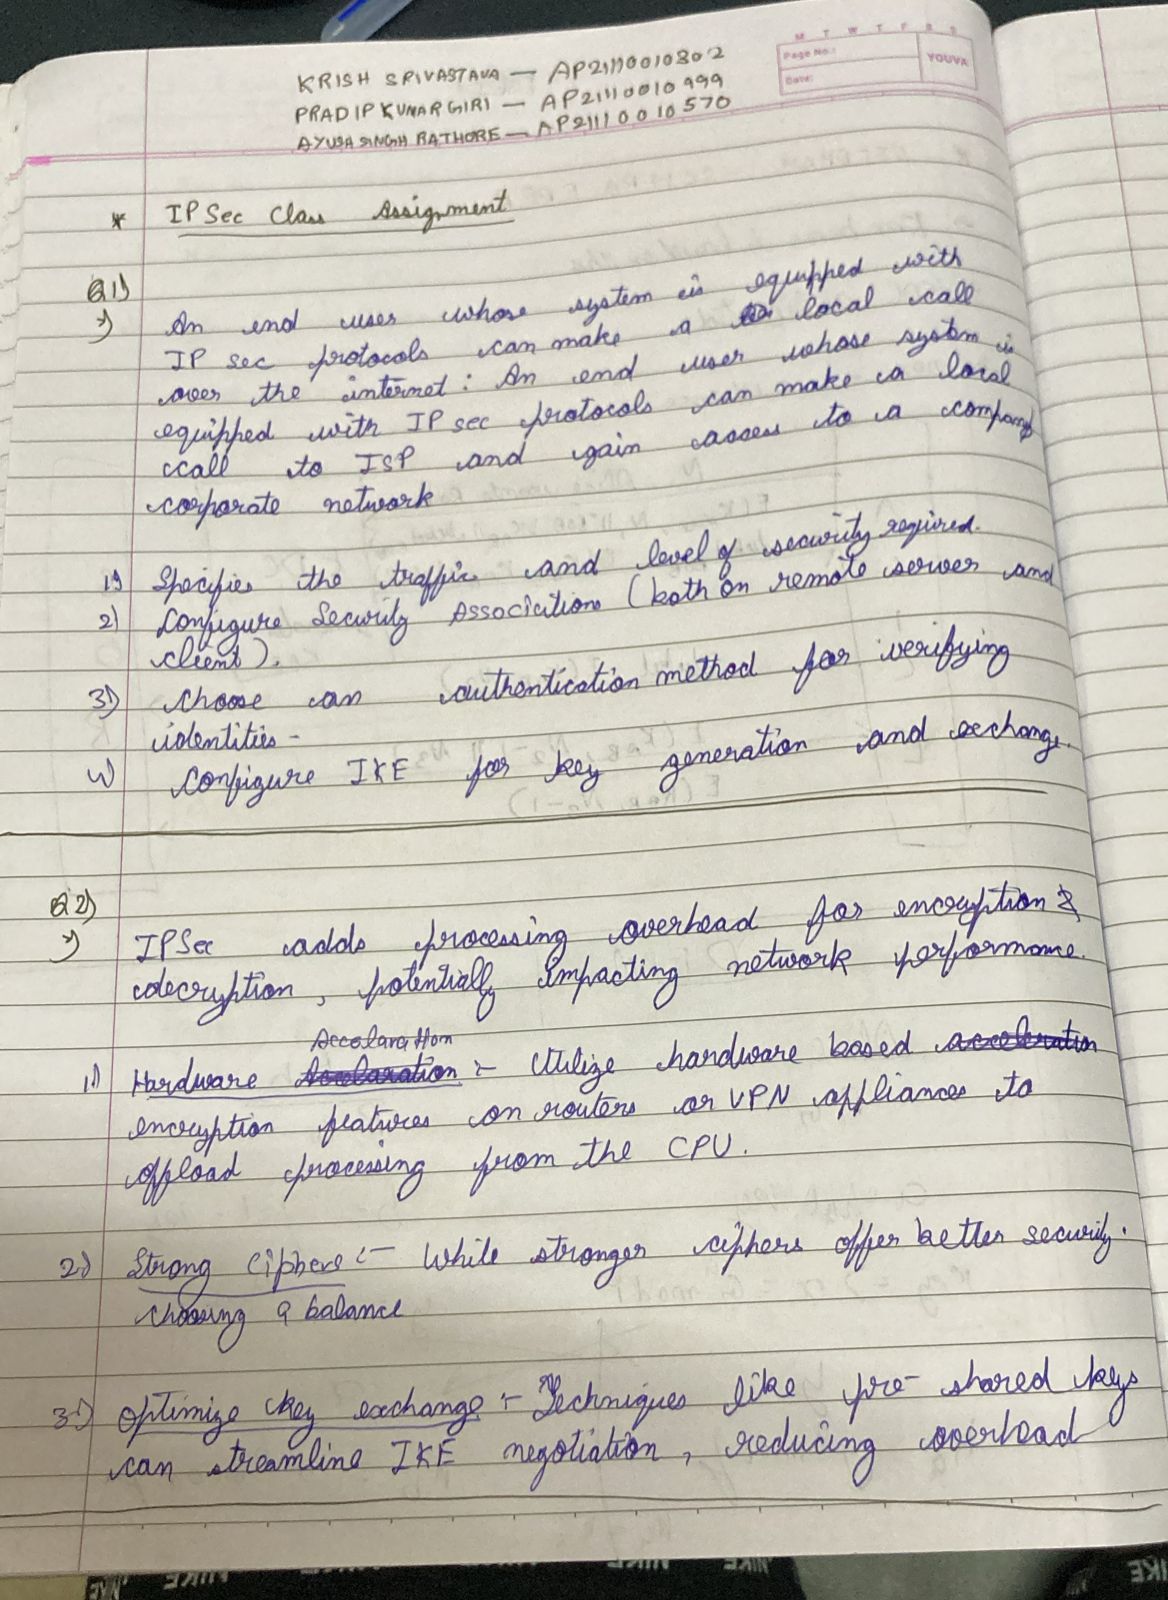 M T W T F S S
Page No.:
Date:
YOUVA
KRISH SRIVASTAVA — AP21110010802
PRADIP KUMAR GIRI — AP21110010999
AYUSH SINGH RATHORE — AP21110010570
* IPSec Class Assignment
Q1)
An end user whose system is equipped with
IP sec protocols can make a local call
over the internet: An end user whose system is
equipped with IP sec protocols can make a local
call to ISP and gain access to a company
corporate network
1) Specifies the traffic and level of security required.
2) Configure Security Associations (both on remote server and
client).
3) Choose an authentication method for verifying
identities -
4) Configure IKE for key generation and exchange.
Q2)
IPSec adds processing overhead for encryption &
decryption, potentially impacting network performance.
Accelaration
1) Hardware :- Utilize hardware based acceleration
encryption features on routers or VPN appliances to
offload processing from the CPU.
2) Strong Ciphers :- While stronger ciphers offer better security.
choosing a balance
3) Optimize key exchange :- Techniques like pre-shared keys
can streamline IKE negotiation, reducing overhead
NIKE NIKE NIKE NIKE